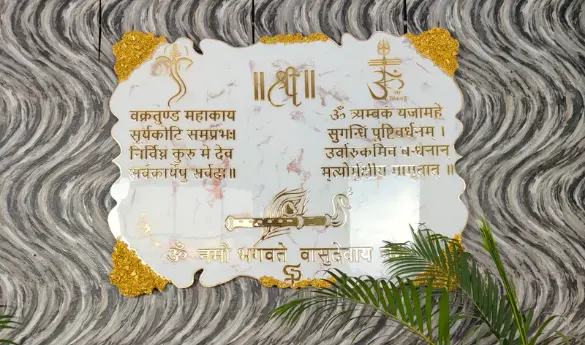 ॥ श्री ॥
वक्रतुण्ड महाकाय
सूर्यकोटि समप्रभः।
निर्विघ्नं कुरु मे देव
सर्वकार्येषु सर्वदा॥
ॐ
ॐ त्र्यम्बक यजामहे
सुगन्धिं पुष्टिवर्धनम् ।
उर्वारुकमिव बन्धनान
मृत्योर्मुक्षीय मामृतात् ॥
ॐ नमो भगवते वासुदेवाय